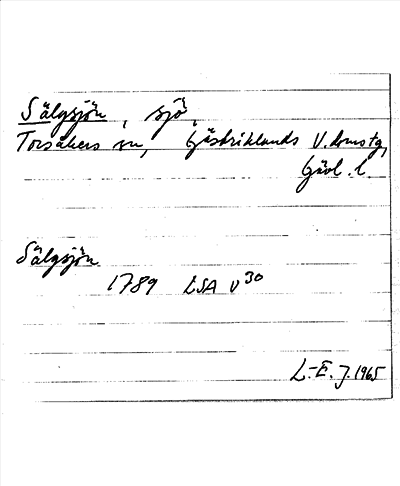 Sälgsjön, sjö,
Torsåkers sn, Gästriklands V. domstg,
Gävl. l.
Sälgsjön
1789 LSA V30
L-E. J. 1965